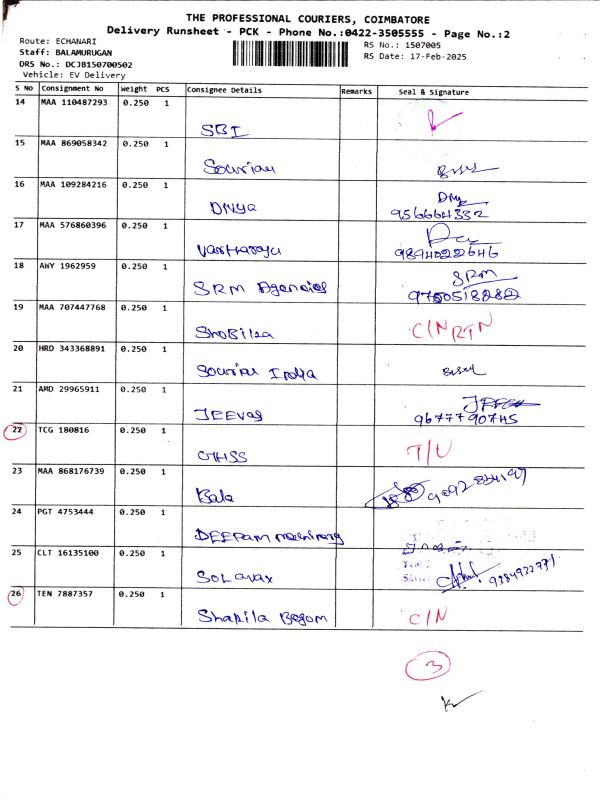 THE PROFESSIONAL COURIERS, COIMBATORE
Delivery Runsheet - PCK - Phone No.:0422-3505555 - Page No.:2
Route: ECHANARI
Staff: BALAMURUGAN
DRS No.: DCJB150700502
Vehicle: EV Delivery
RS No.: 1507005
RS Date: 17-Feb-2025
S No Consignment No Weight PCS Consignee Details Remarks Seal & Signature
14 MAA 110487293 0.250 1
SBI
15 MAA 869058342 0.250 1
Souriau
16 MAA 109284216 0.250 1
Divya
956664332
17 MAA 576860396 0.250 1
Vartharaju
9894022646
18 AWY 1962959 0.250 1
SRM Agencies SRM
9750518282
19 MAA 707447768 0.250 1
Shobilsa C/N RTN
20 HRD 343368891 0.250 1
Souriau India
21 AMD 29965911 0.250 1
JEEVAS
9677790745
22 TCG 180816 0.250 1
GHSS T/U
23 MAA 868176739 0.250 1
Bala
24 PGT 4753444 0.250 1
DEEPAM
25 CLT 16135100 0.250 1
Solavax 9884932771
26 TEN 7887357 0.250 1
Shakila Begom C/N
3